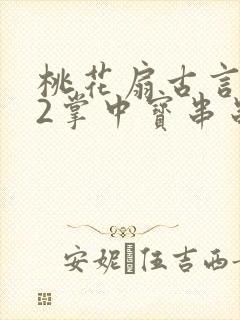 桃花扇古言
2掌中寶串
安妮 伍吉西